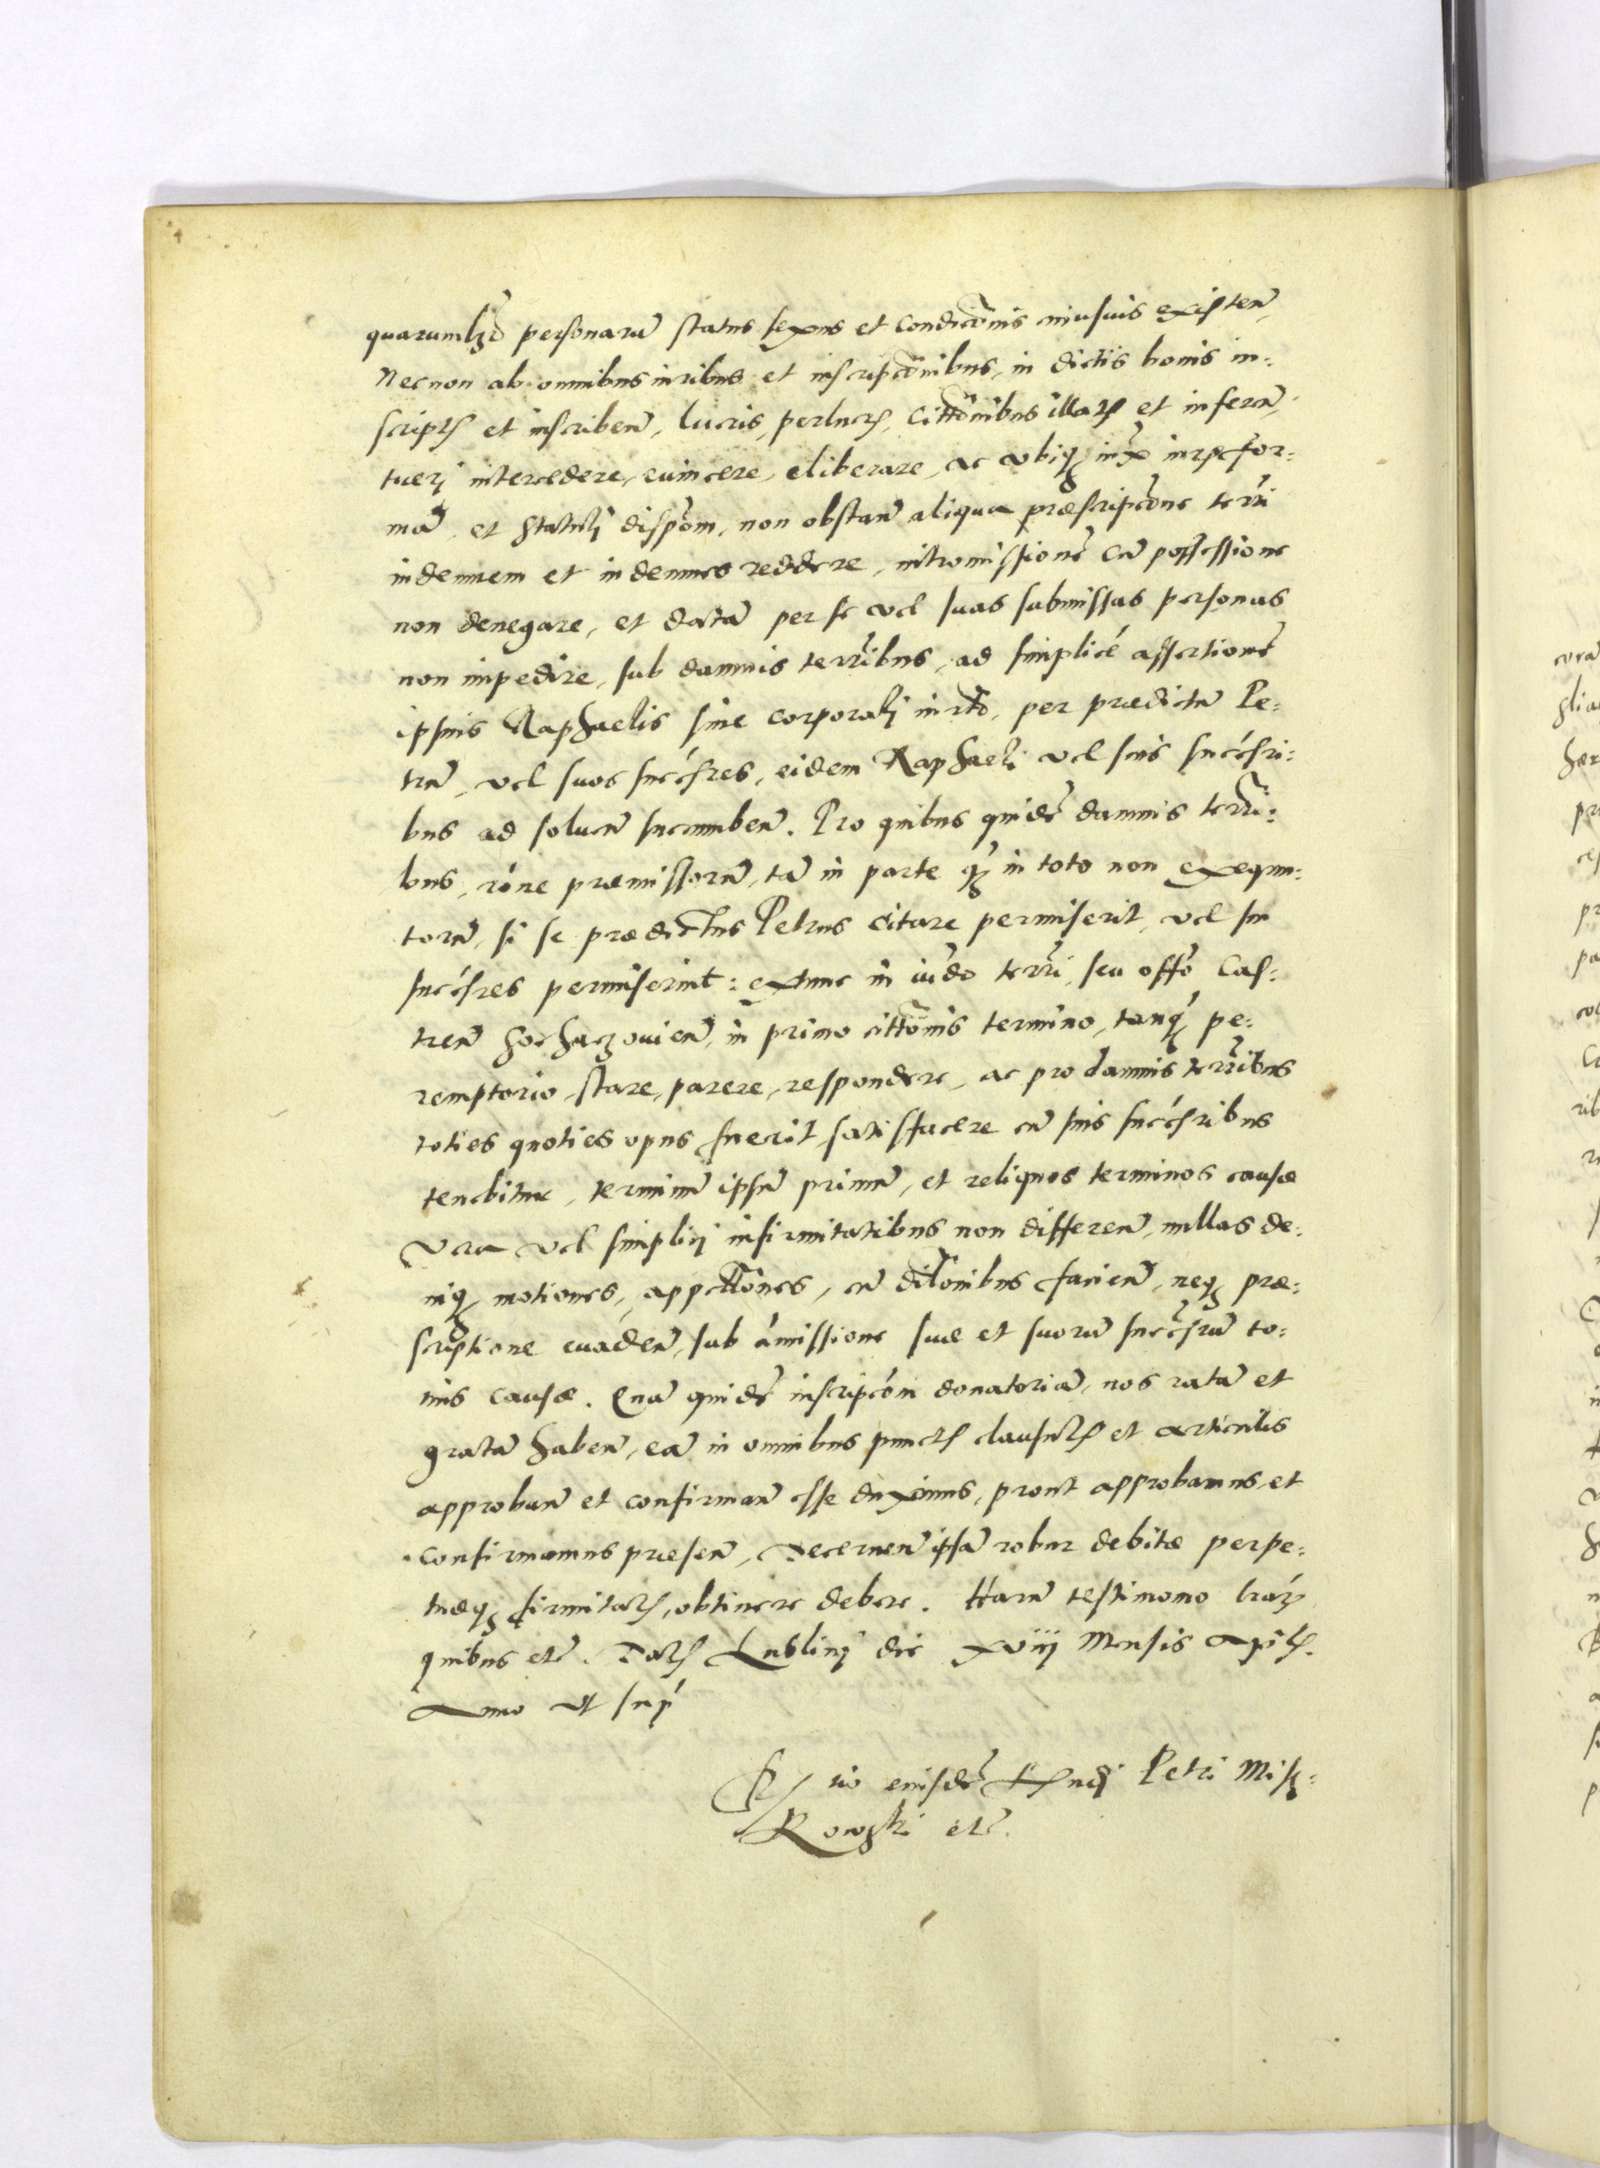 quarumlz̃ personarũ status sexus et condic̃onis cuiusuis existeñ,
Necnon ab omnibus iuribus et inscripc̃onibus, in dictis bonis in:
script͠ et inscribeñ, lucris, perlucr͠, Citt̃onibus illat͠ et infereñ,
tuerj intercedere, euincere, eliberare, ac vbiq3 iux̃ iur͠ for:
mã, et statutj disp̃om, non obstañ aliqua præscripc̃one terr̃i
indemnem et indemnes reddere, intromissionẽ cũ possessione
non denegare, et datã per se vel suas submissas personas
non impedire, sub damnis terr̃ibus, ad simplicẽ assertionẽ
ipsius Raphaelis sine corporalj iur̃to, per prædictũ Pe:
trũ, vel suos succ̃sres, eidem Raphaeli vel suis succ̃sri:
bus ad solueñ succumbeñ. Pro quibus quidẽ damnis terri͠:
bus, rõne præmissorũ, tã in parte q3 in toto non exequu:
torũ, si se prædictus Petrus citare permiserit, vel sui
succ̃sres permiserint: extunc in iud̃o terr̃i, seu off̃o Cas:
treñ Sochaczouieñ, in primo citt̃onis termino, tanq̃ pe:
remptorio stare, parere, respondere, ac pro damnis terr̃ibus
toties quoties opus fuerit satisfacere cũ suis succ̃sribus
tenebitur, terminũ ipsũ primũ, et reliquos terminos causæ
Vera vel simplicj infirmitatibus non differeñ, nullas de:
niq3 motiones, appell̃ones, cũ dil̃onibus facieñ, neq3 præ:
scriptione euadeñ, sub amissione suæ et suorũ succ̃srũ to:
tius causæ. Quã quidẽ inscripc̃om donatoriã, nos ratã et
gratã habeñ, eã in omnibus punct͠ clausul͠ et articulis
approbanñ et confirmanñ esse duximus, prout approbamus, et
confirmamus præseñ, Decerneñ ipsã robur debitæ perpe:
tuæq3 firmitat͠, obtinere debere. Harũ testimonio lr̃ar͠
quibus etc̃. Dat͠ Lublinj die xviij Mensis Apr̃l͠.
Anno vt sup̃
R͠ tio eiusdẽ Rndj Petri Misz:
Kowski etc̃.